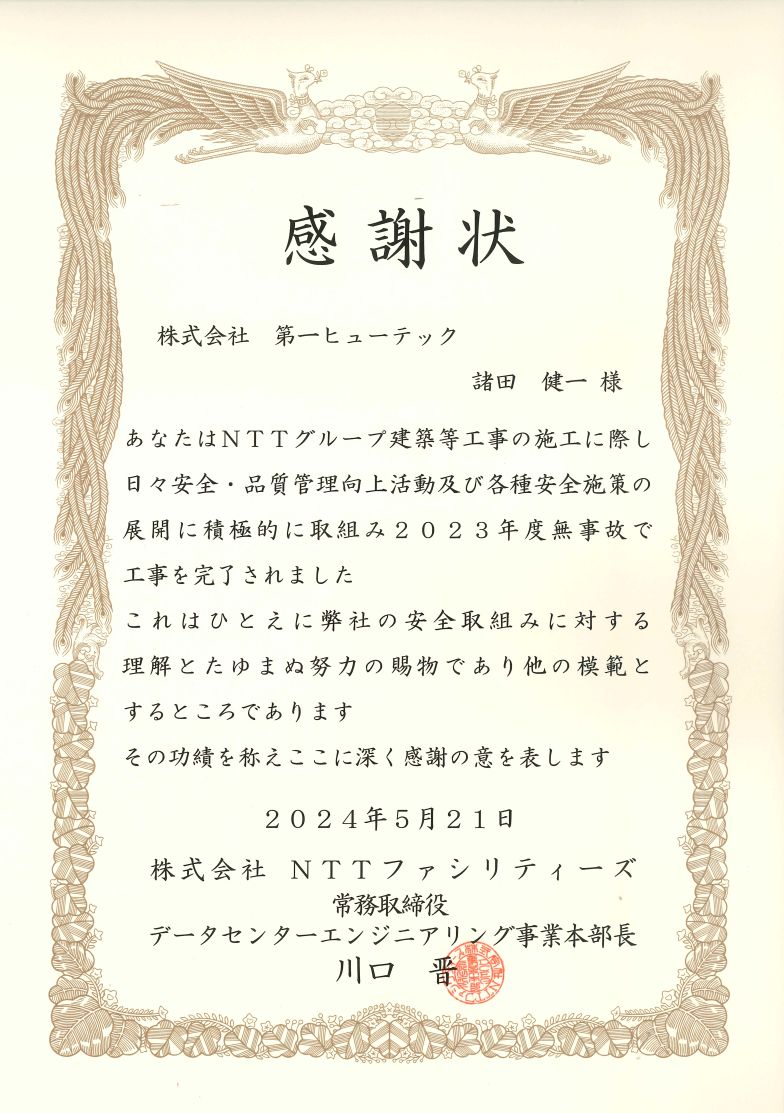 感謝状
株式会社　第一ヒューテック
諸田　健一 様
あなたはＮＴＴグループ建築等工事の施工に際し
日々安全・品質管理向上活動及び各種安全施策の
展開に積極的に取組み２０２３年度無事故で
工事を完了されました
これはひとえに弊社の安全取組みに対する
理解とたゆまぬ努力の賜物であり他の模範と
するところであります
その功績を称えここに深く感謝の意を表します
２０２４年５月２１日
株式会社 ＮＴＴファシリティーズ
常務取締役
データセンターエンジニアリング事業本部長
川口　晋